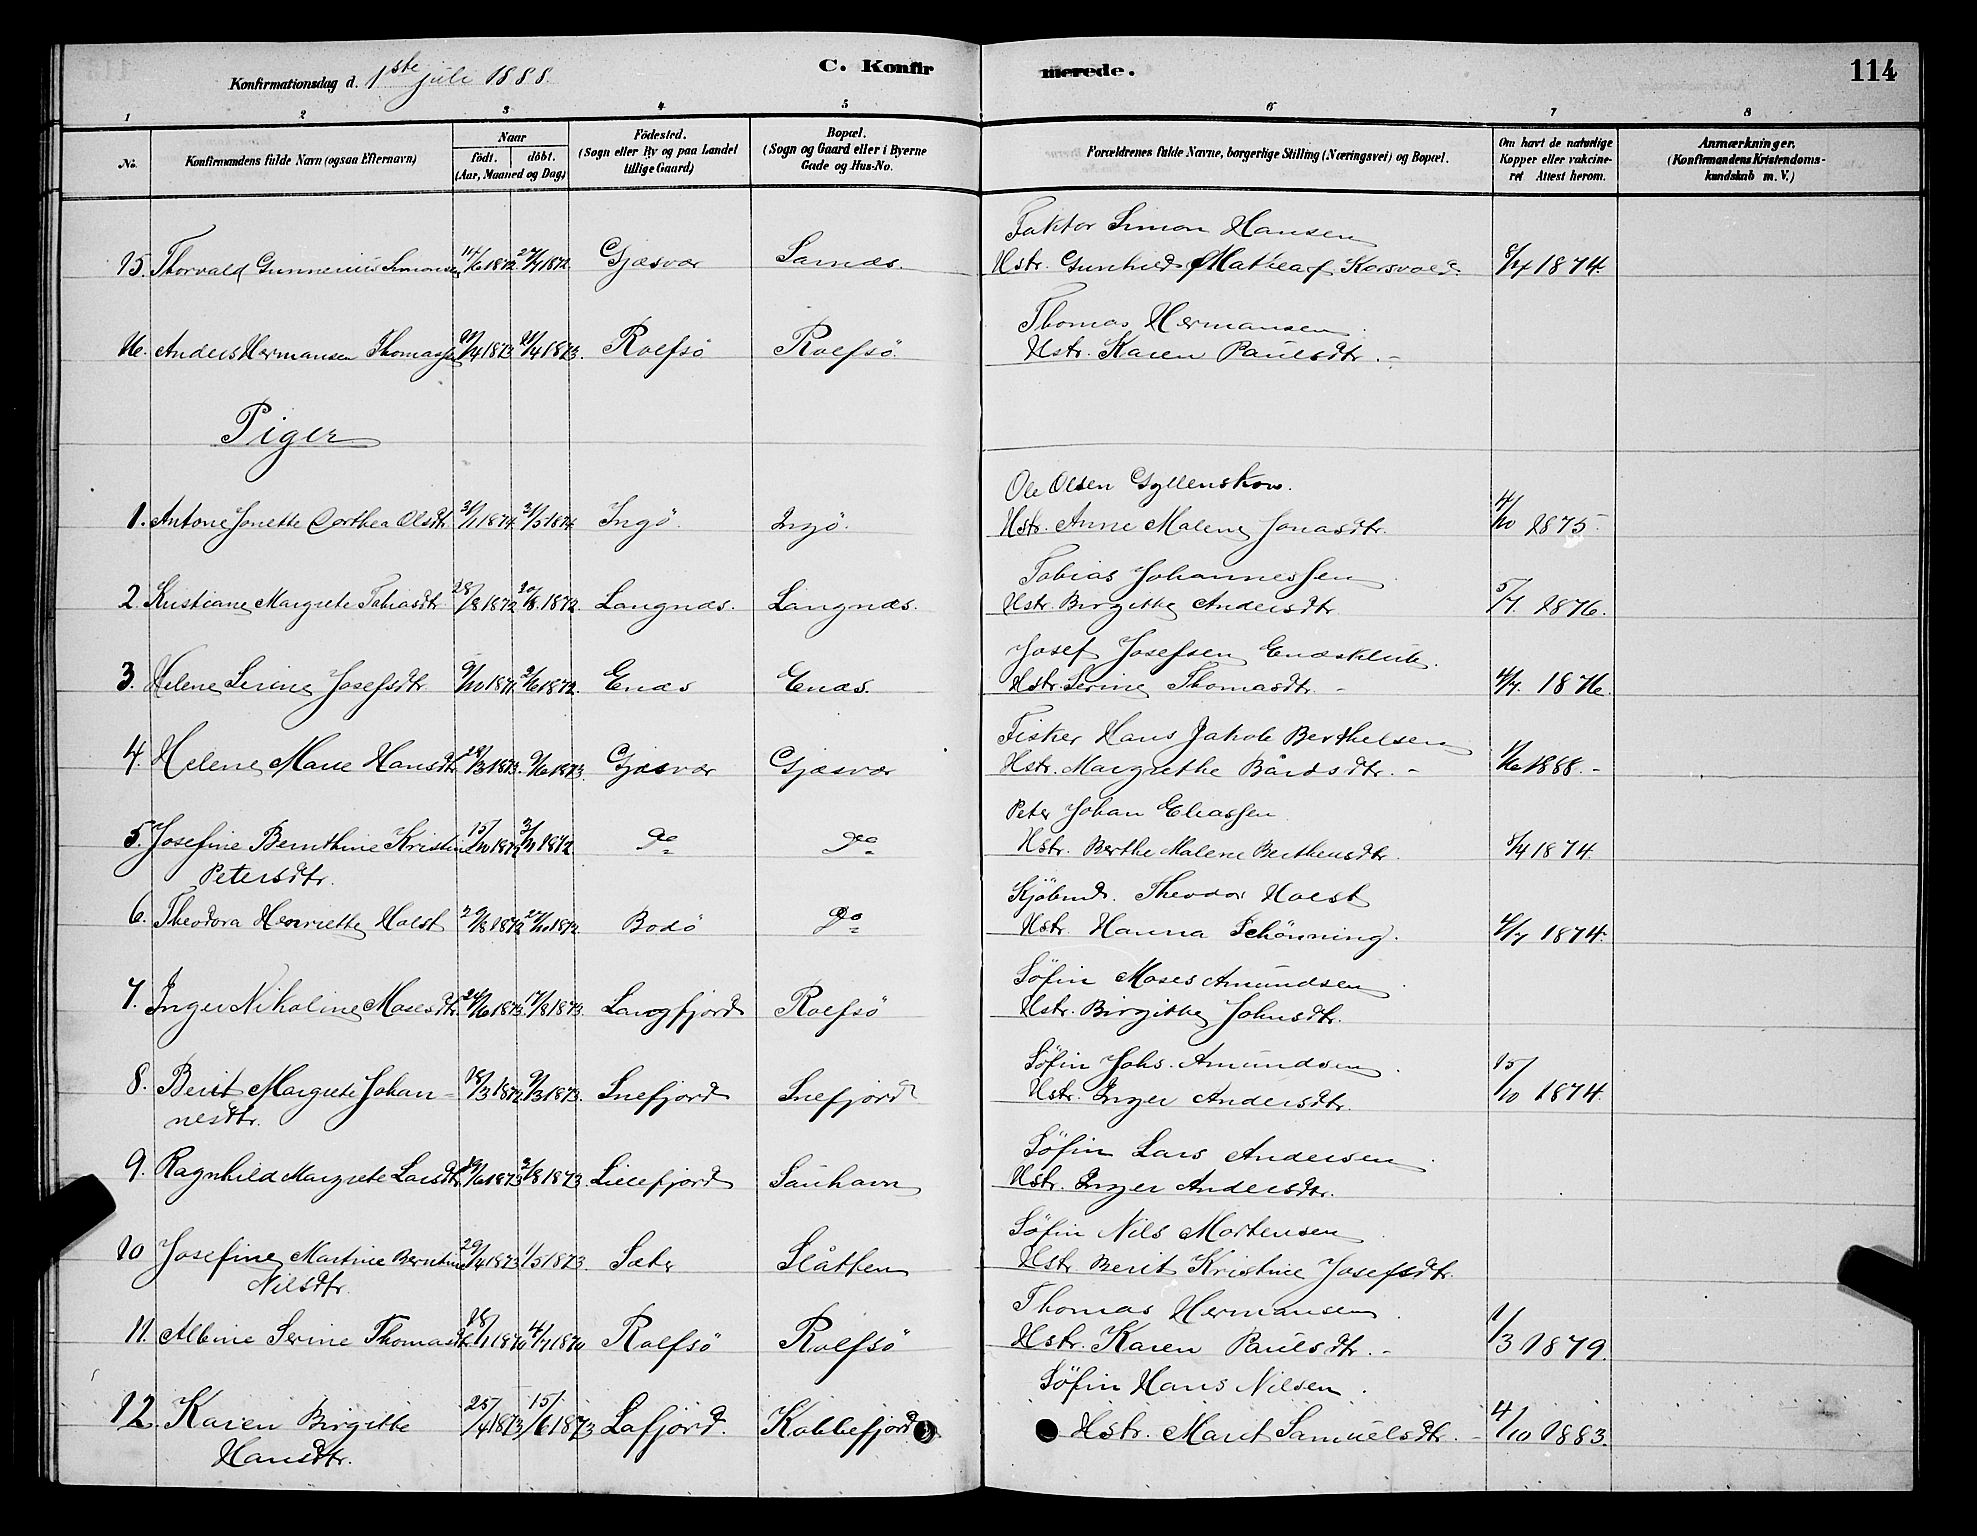 Konfirmationsdag d. 1ste juli 1888.
C. Konfirmerede.
114
1 2 3 4 5 6 7 8
No.
Konfirmandens fulde Navn (ogsaa Efternavn)
Naar
födt. döbt.
(Aar, Maaned og Dag)
Födested.
(Sogn eller By og paa Landet
tillige Gaard)
Bopæl.
(Sogn og Gaard eller i Byerne
Gade og Hus-No.
Forældrenes fulde Navne, borgerlige Stilling (Næringsvei) og Bopæl.
Om havt de naturlige
Kopper eller vakcine-
ret Attest herom.
Anmærkninger.
(Konfirmandens Kristendoms-
kundskab m. V.)
Faktor Simon Hansen
15. Thorvald Gunnerius Simonsen 1872 1872 Gjæsvær Sarnæs. Hstr. Mathea Korsvold 1874.
Thomas Hermansen
16. Anders Hermansen Thomassen 1873 1873. Rolfsö Rolfsö. Hstr. Karen Paulsdtr. -
Piger
Ole Olsen Gyllenskow.
1. Antone Jonette Dorthea Olsdtr. 1874. 1874 Ingö. Ingö. Hstr. Anne Malene Jonasdtr. 4/10 1875.
Tobias Johannessen
2. Kristiane Margrete Tobiasdtr. 28/8 1872 1872. Langnæs. Langnæs. Hstr. Birgitte Andersdtr. 5/7. 1876.
Josef Josefsen
3. Helene Serine Josefsdtr. 9/10 1871. 1872. Enæs Enæs. Hstr. Serine Thomasdtr. - 4/7. 1876.
Fisker Hans Jakob Berthelsen
4. Helene Marie Hansdtr. 28/3 1873. 1873. Gjæsvær Gjæsvær Hstr. Margrethe Bårdsdtr. - 1888. -
Peter Johan Eliassen
5. Josefine Bernthine Kristine 15/10 1872 1872 do do Hstr. Berthe Malene Bertheusdtr. 1874.
Petersdtr.
Kjöbmd. Theodor Holst
6. Theodora Henriette Holst 29/8 1872 1872 Bodö do Hstr. Hanna Schönning. 1874.
Söfin Moses Amundsen
7. Inger Nikoline Mosesdtr. 24/6 1873. 17/8 1873. Langfjord Rolfsö Hstr. Birgitte Johnsdtr.
Söfin Johs. Amundsen
8. Berit Margrete Johan- 18/3 1872 9/3 1873. Snefjord Snefjord Hstr. Inger Andersdtr. 15/10 1874.
nesdtr.
Söfin Lars Andersen
9. Ragnhild Margrete Larsdtr. 1873 1873. Lillefjord Sauhavn Hstr. Inger Andersdtr.
Söfin Nils Mortensen
10 Josefine Martine Berntine 29/4 1873 1/5 1873. Slåtten Hstr Berit Kristine Josefsdtr.
Nilsdtr.
Thomas Hermansen
11. Albine Serine Thomasdtr. 18/1 1870 4/7 1870 Rolfsö Rolfsö Hstr. Karen Paulsdtr. - 1/3 1879.
Söfin Hans Nilsen
12. Karen Birgitte 25/4 1873 15/6 1873 Lafjord. Kobbefjord Hstr. Marit Samuelsdtr. - 4/10 1883.
Hansdtr.